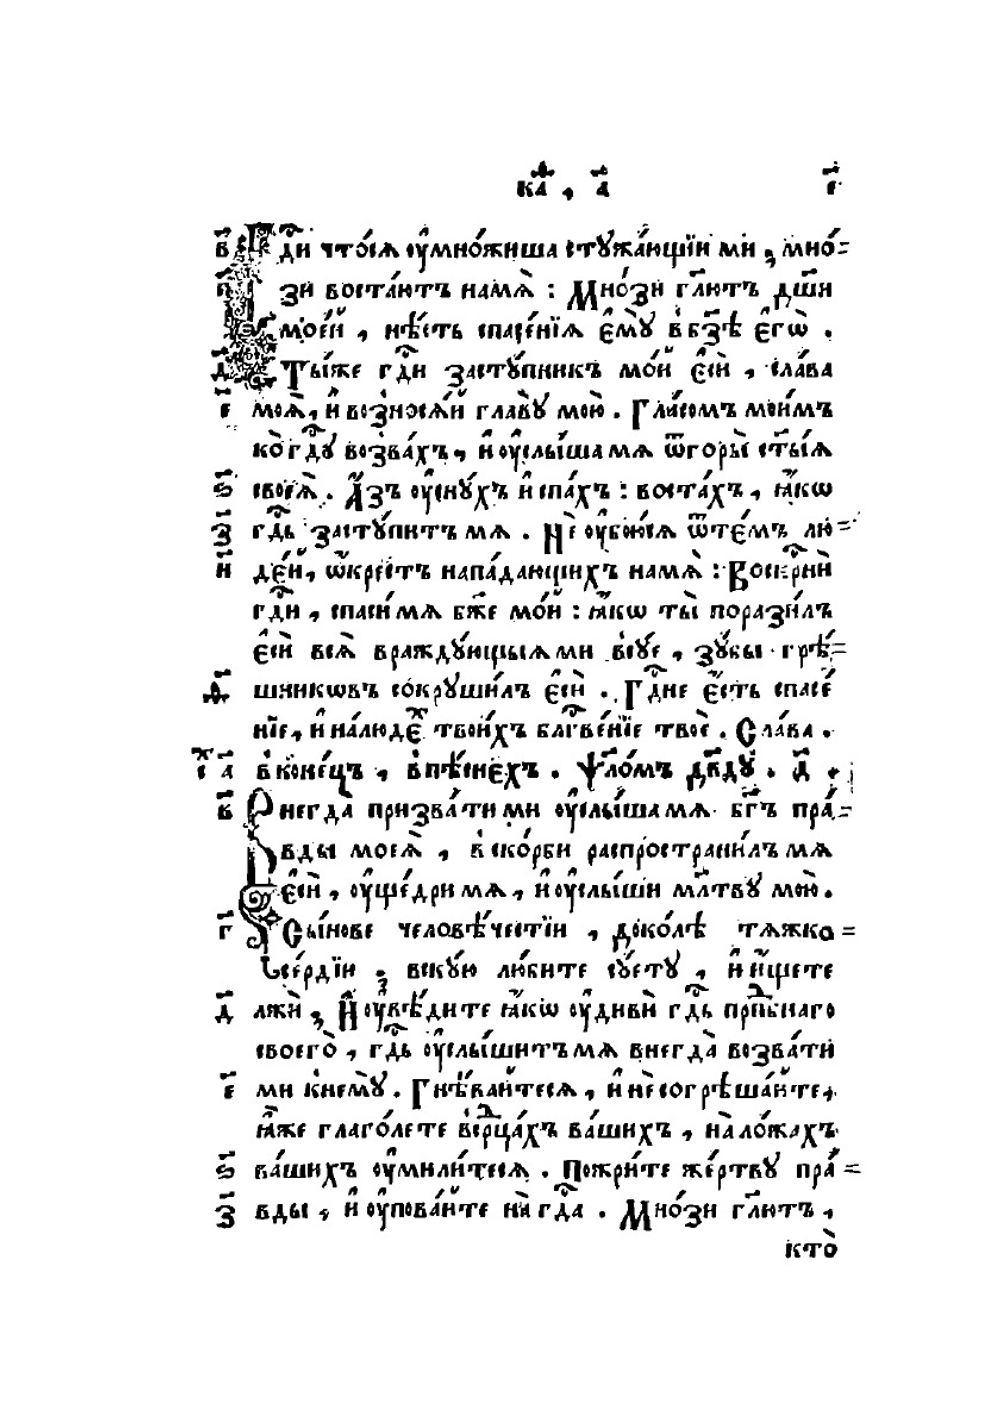 каѳ҃ , а҃ е҃
в҃ Гдⷭ҇и что́сѧ ᲂу҆мно́жишасѧ стꙋжа́ющїи ми , мно́=
г҃ зи востаю́тъ намѧ̀ : Мно́зи гл҃ютъ дш҃и
мое́й , нѣ́сть спасе́нїѧ є҆мꙋ̀ в҆бз҃ѣ є҆гѡ̀ .
д҃ Ты́же гдⷭ҇и застꙋ́пникъ мо́й є҆сѝ , сла́ва
е҃ моѧ̀ , и҆ возносѧ́й главꙋ̀ мою̀ . Гла́сомъ мои́мъ
ко̀гдⷭ҇ꙋ возва́хъ , и҆ᲂу҆слы́шамѧ ѿгоры̀ ст҃ы́ѧ
ѕ҃ своеѧ̀ . А҆́зъ ᲂу҆снꙋ́хъ и҆спа́хъ : воста́хъ , ꙗ҆́кѡ
з҃ гдⷭ҇ь застꙋ́питмѧ . Не ᲂу҆бою́сѧ ѿте́мъ лю=
и҃ де́й , ѡ҆́крестъ напа́дающихъ намѧ̀ : Воскрⷭ҇нѝ
гдⷭ҇и , спаси́мѧ бж҃е мо́й : ꙗ҆́кѡ ты̀ порази́лъ
є҆сѝ всѧ̀ враждꙋ́ющыѧми всꙋ́е , зꙋ́бы грѣ́=
ѳ҃ шникѡвъ сокрꙋши́лъ є҆сѝ . Гдⷭ҇не є҆́сть спасе́
нїе , и҆ на́людеⷯ твои́хъ блгⷭ҇ве́нїе твоѐ . Сла́ва .
сⷯ а҃ в҆коне́цъ , в҆пѣ́снехъ . Ѱло́мъ дв҃дꙋ . д҃ .
в҃ Внегда призва́тими ᲂу҆слы́шамѧ бг҃ъ пра́=
вды моеѧ̀ , в҆ско́рби распространи́лъмѧ
є҆сѝ , ᲂу҆ще́дримѧ , и҆ᲂу҆слы́ши мл҃твꙋ мою̀ .
г҃ Сы́нове человѣ́честїи , доко́лѣ тѧжко=
се́рдїи ; вскꙋ́ю лю́бите сꙋ́етꙋ , и҆ и҆́щете
д҃ лжѝ ; И҆ ᲂу҆вѣ́дите ꙗ҆́кѡ ᲂу҆дивѝ гдⷭ҇ь прпⷣбнаго
своего̀ , гдⷭ҇ь ᲂу҆слы́шитъмѧ внегда̀ возва́ти
е҃ ми к҆немꙋ̀ . Гнѣ́вайтесѧ , и҆ нѐсогрѣша́йте ,
ꙗ҆́же глаго́лете в҆срⷣца́хъ ва́шихъ , на̀ло́жахъ
ѕ҃ ва́шихъ ᲂу҆мили́тесѧ . Пожри́те же́ртвꙋ пра́=
з҃ вды , и҆ ᲂу҆пова́йте на̀ гдⷭ҇а . Мно́зи гл҃ютъ ,
кто̀